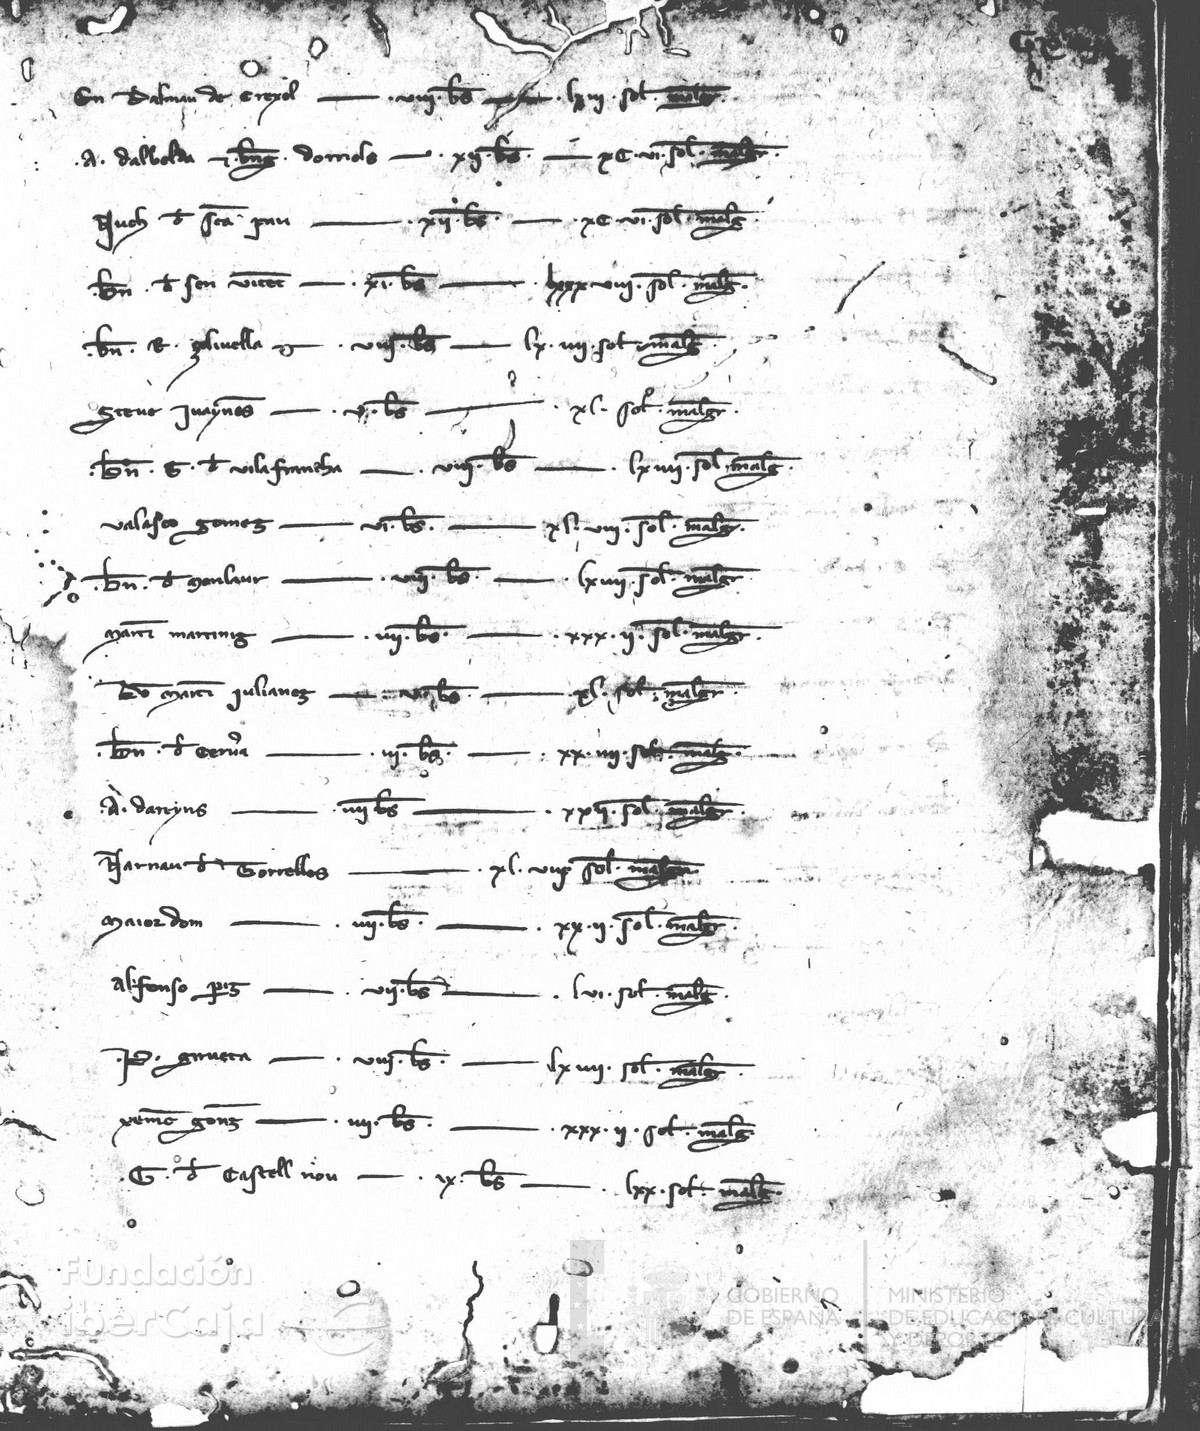 En Dalmau de Crexel · viii · bs · lxiiii · sol · malgr ·
· A · dalbolda · bng · dorriols · xii · bs · xC · vi · sol · malgr ·
Nuch d sca pau · xii · bs · xC · vi · sol · malg ·
· bn · d sen vicec · xi · bs · lxxx · viii · sol · malg ·
· bn · R · viii · bs · lx · iiii · sol · malg
Steve · v · bs · xl · sol · malgr ·
· bn · G · d vilafrancha · viii · bs · lx iiii · sol · malg ·
valasco gomez · vi · bs · xl · viii · sol · malgr ·
· bn · d Monlaur · viii · bs · lx iiii · sol · malgr
Marti martinz · iiii · bs · xxx · ii · sol · malgr ·
Marti Julianez · v · bs · xl · sol · malgr ·
· bn · d Cerva · iii · bs · xx · iiii · sol · malgr ·
· A · dartyns · iiii bs · xx ii · sol · malgr ·
Narnau d Torrelles · xl · viii · sol · malgr
Maior dom · iiii · bs · xx · ii · sol · malgr ·
Alfonso prz · vii · bs · lvi · sol · malg ·
· P · · viii · bs · lx iiii · sol · malgr ·
xemc gonz · iiii · bs · xxx · ii · sol · malg
· G · d Castell nou · ix · bs · lxx · sol · malg ·
Fundación
iberCaja
GOBIERNO
DE ESPAÑA
MINISTERIO
DE EDUCACIÓN, CULTURA
Y DEPORTE